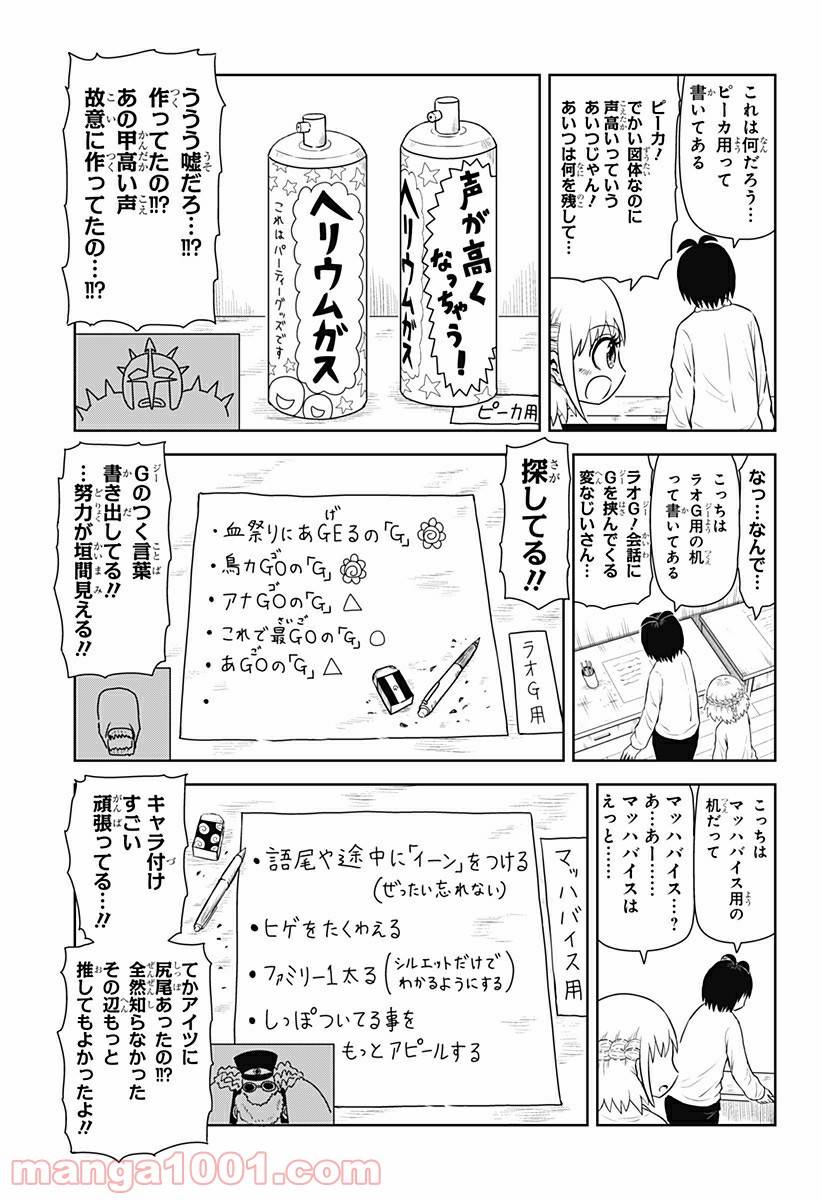 これは何だろう…
ピーカ用って
書いてある
ピーカ！
でかい図体なのに
声高いっていう
あいつじゃん！
あいつは何を残して…
声が高く
なっちゃう！
ヘリウムガス
ヘリウムガス
これはパーティーグッズです
ピーカ用
ううう嘘だろ…!!?
作ってたの!!?
あの甲高い声
故意に作ってたの…!!?
なっ…なんで…
こっちは
ラオG用の机
って書いてある
ラオG！会話に
Gを挟んでくる
変なじいさん…
探してる!!
・血祭りにあGEるの「G」
・鳥カGOの「G」
・アナGOの「G」△
・これで最GOの「G」○
・あGOの「G」△
・
ラオG用
Gのつく言葉
書き出してる!!
…努力が垣間見える!!
こっちは
マッハバイス用の
机だって
マッハバイス…?
あ…あー……
マッハバイスは
えっと……
マッハバイス用
・語尾や途中に「イーン」をつける
(ぜったい忘れない)
・ヒゲをたくわえる
・ファミリー1太る(シルエットだけで
わかるようにする)
・しっぽついてる事を
もっとアピールする
キャラ付け
すごい
頑張ってる…!!
てかアイツに
尻尾あったの!!?
全然知らなかった
その辺もっと
推してもよかったよ!!
manga1001.com